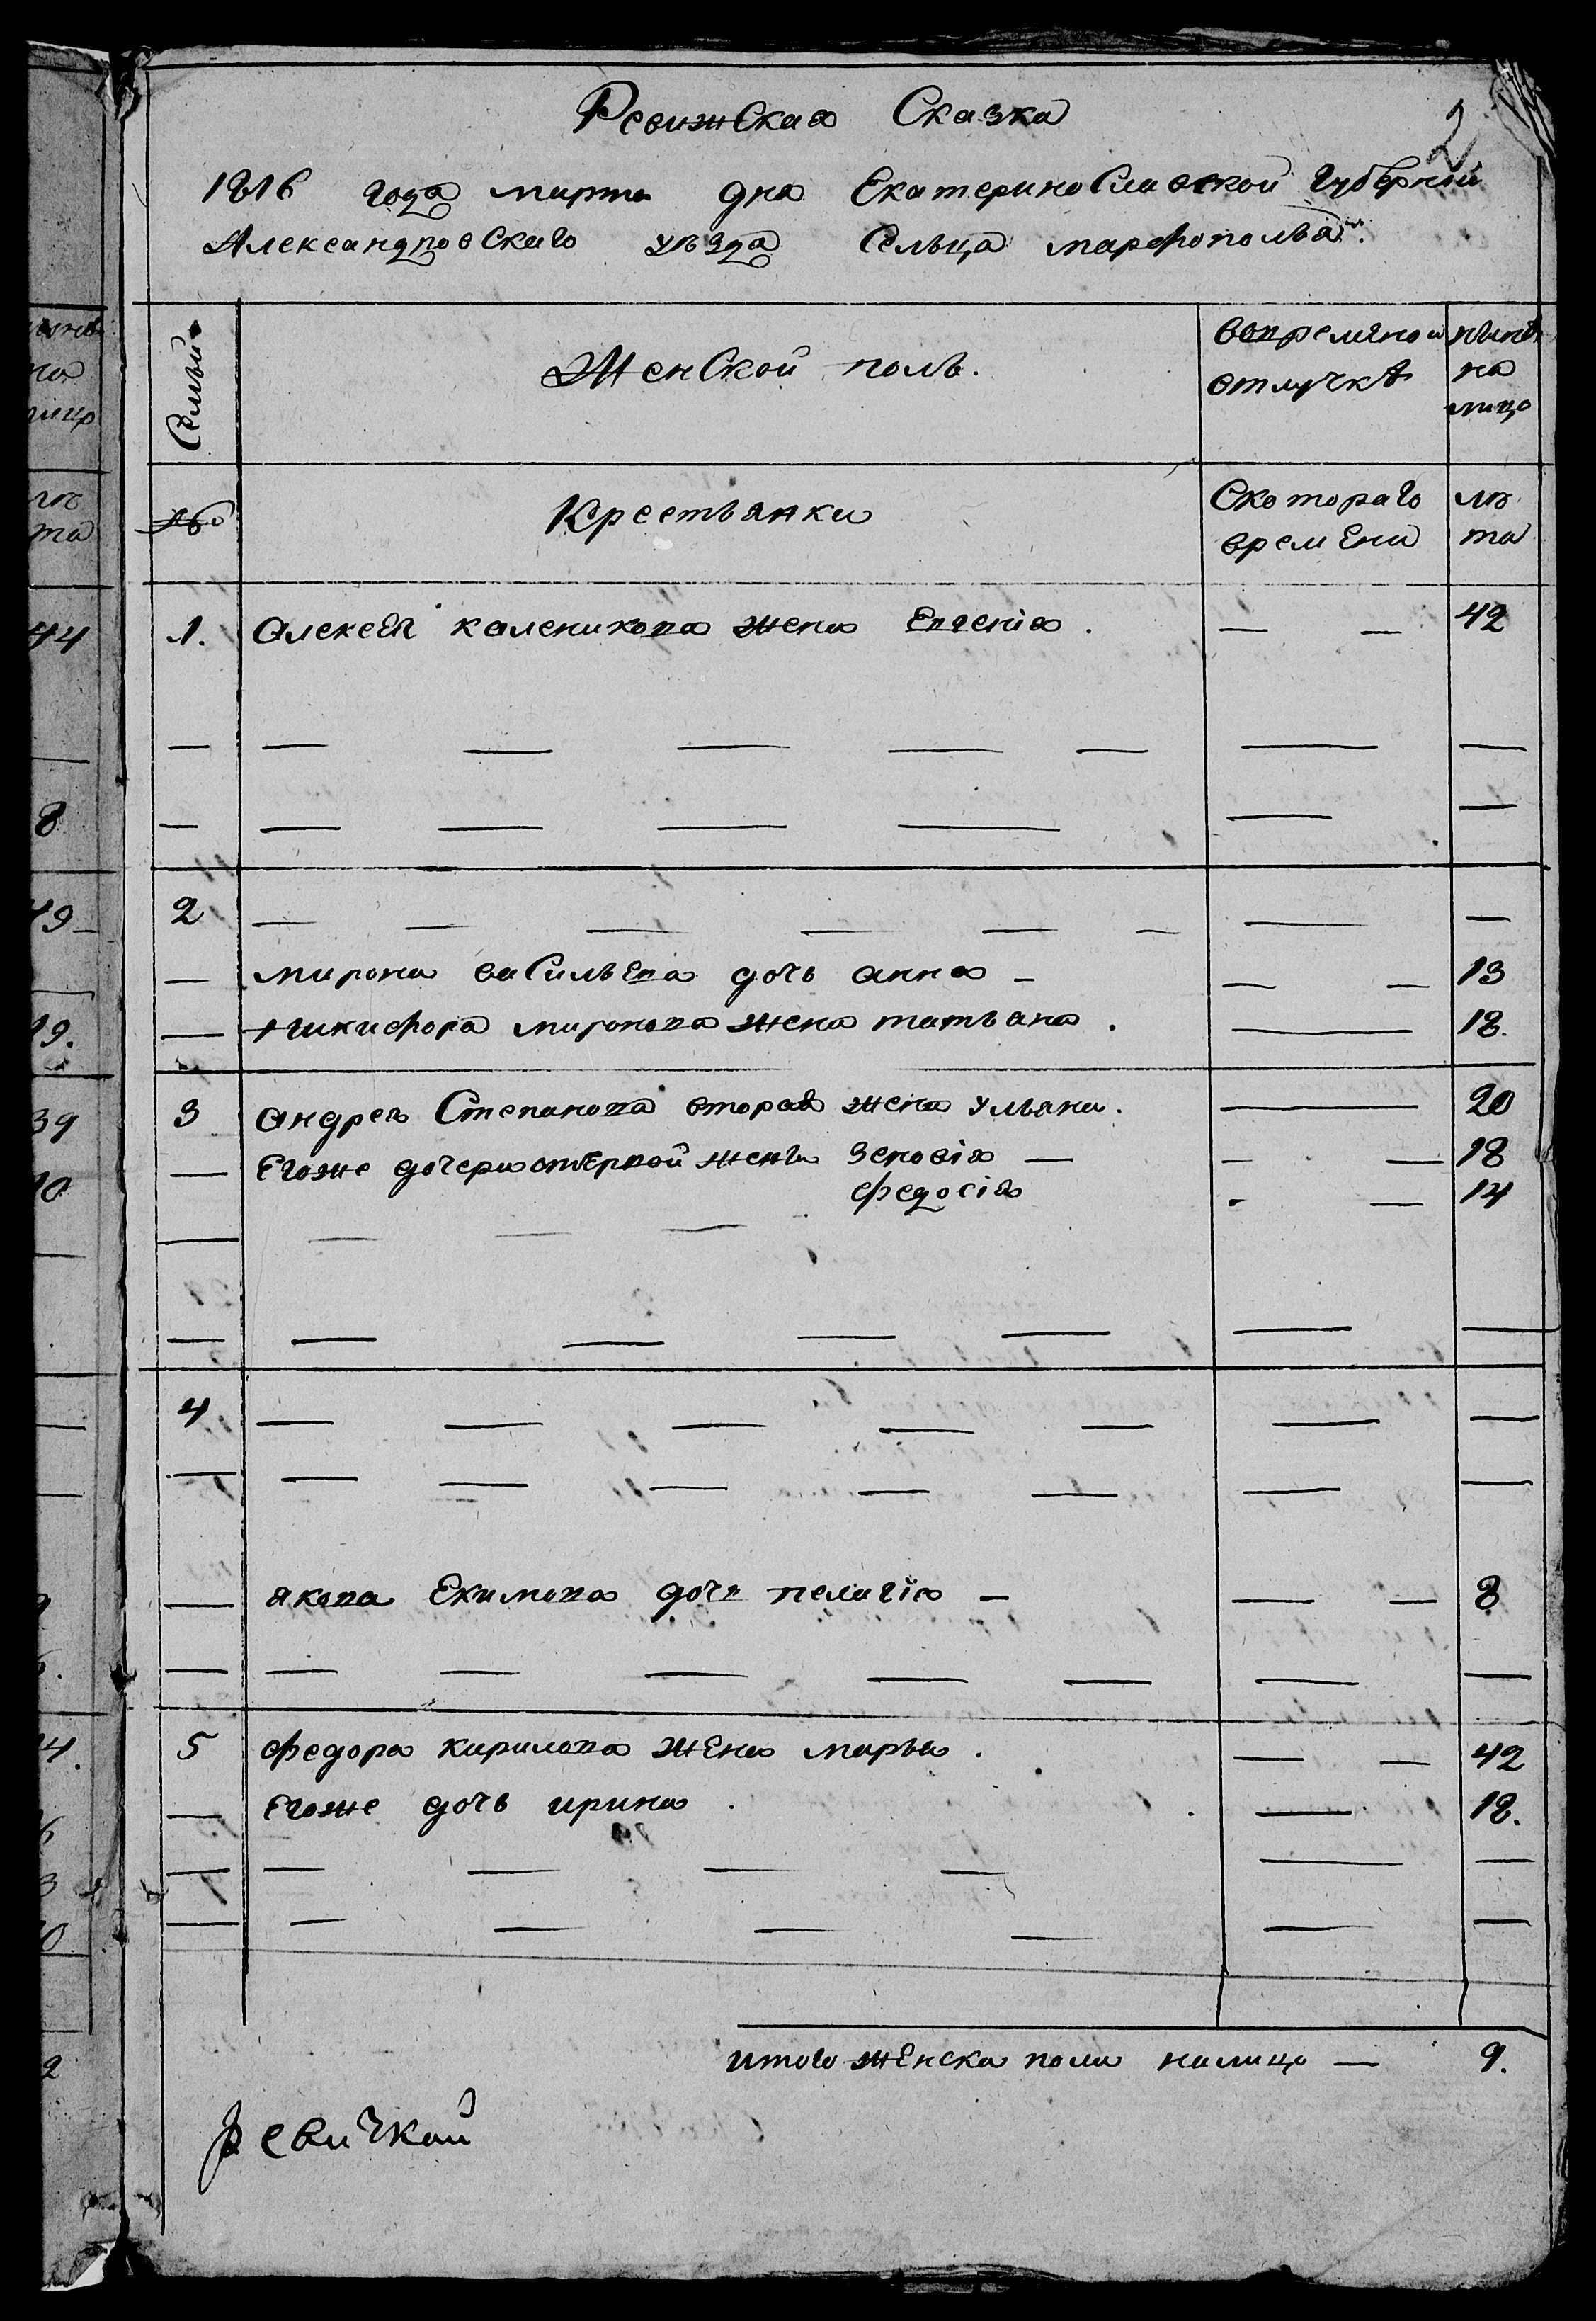 2
Ревижская Сказка
1816 года марта дня Екатеринославской Губерной
Александровскаго уѣзда Сельца марфополья.
Семьи
Женской полъ.
вовремяной отлучкѣ
нынѣ на лицо
№
Крестьянки
Скотораго времени
лѣта
1. алексея каленикова жена Евгенія. — — 42
— — — — — — — —
— — — — — — —
2 — — — — — — — —
— мирона васильева дочь анна — — — 13
— никифора миронова жена татьана. — 18.
3 андрея Степанова вторая жена ульяна. — 20
— Егоже дочери отпервой жены Зеновія — — — 18
федосія — 14
— — — —
— — — — — — —
4 — — — — — — —
— — — — — — — —
— якова Екимова дочь пелагія — — — 8
— — — — — — — —
5 федора кирилова жена марья. — — 42
— Егоже дочь ирина. — 18.
— — — — — — —
— — — — — — —
итого женска пола налицо — 9.
44
8
49
19.
39
10
4.
6
3
0
2